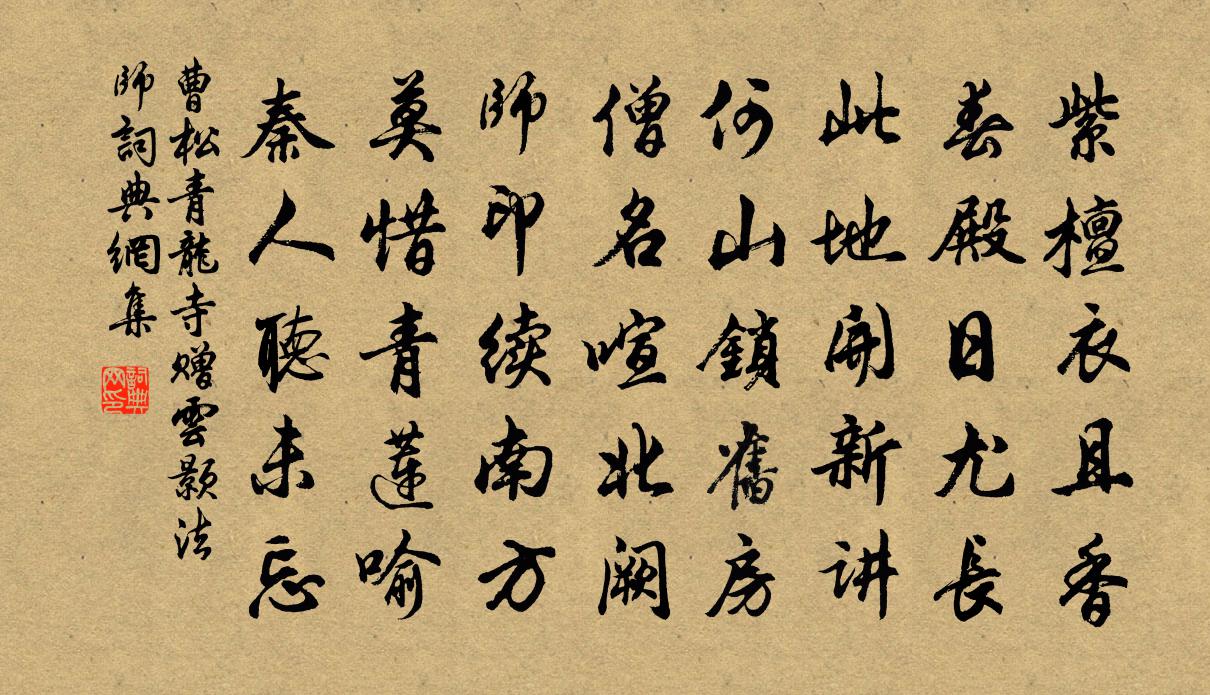 紫檀衣且香
春殿日尤長
此地開新讲
何山鎖舊房
僧名喧北闕
師印续南方
莫惜青蓮喻
秦人聽未忘
曹松青龍寺赠雲颢法
師詞典網集
詞典网印